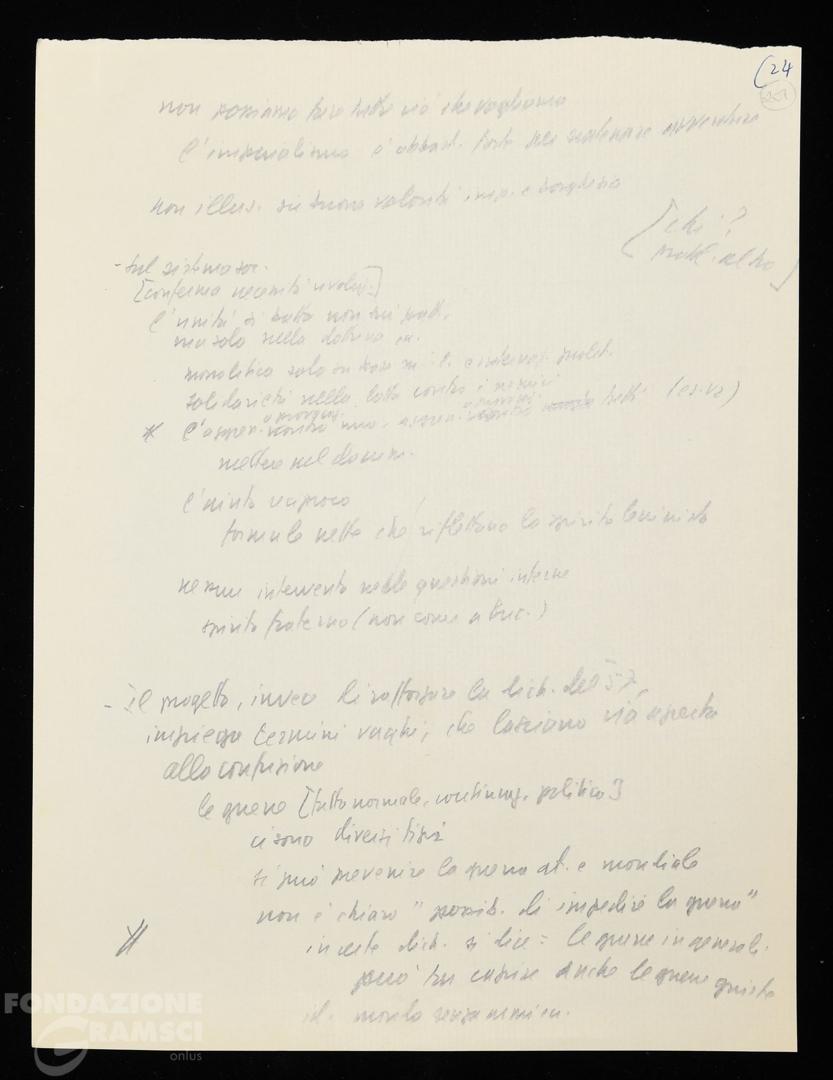 (24
non possiamo fare tutto ciò che vogliamo
l'imperialismo è abbast. forte per scatenare avventure
non illus. su buona volontà imp. e borghesia
[chi?
]
- sul sistema soc.
[conferma necessità rivoluz.]
l'unità si basa non sui patt.
ma solo nella dottrina
monolitico solo su base m.-l. e internaz. prolet.
solidarietà nella lotta contro i nemici
* l'aggr. contro uno, aggr. contro tutti (es. Va)
mettere nel docum.
l'aiuto reciproco
formule nette che riflettano lo spirito leninista
nessun intervento nelle questioni interne
spirito fraterno (non come a Buc.)
- il progetto, invece di rafforzare la dich. del 57,
impiega termini vaghi, che lasciano via aperta
alla confusione
le guerre [tutto normale, continuaz. politica]
ci sono diversi tipi
si può prevenire la guerra at. e mondiale
non è chiaro "possib. di impedire la guerra"
in certe dich. si dice: le guerre in generale.
può far capire anche le guerre giuste
il mondo senza armi
FONDAZIONE
GRAMSCI
onlus